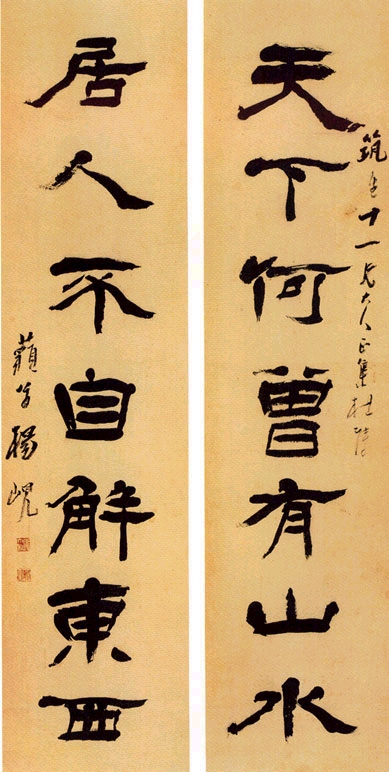 筑
十一兄大人正集杜
天下何曾有山水
居人不自解東西
楊峴